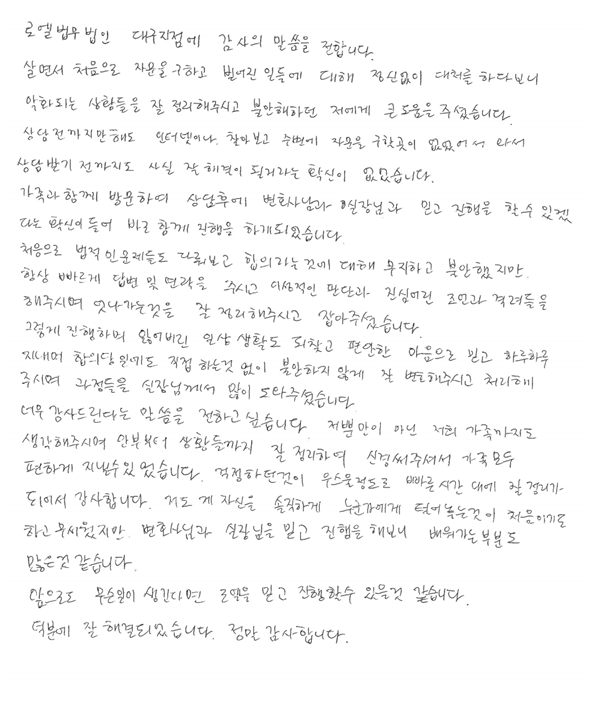 로엘 법무법인 대구지점에 감사의 말씀을 전합니다.
살면서 처음으로 자문을 구하고 벌어진 일들에 대해 정신없이 대처를 하다보니
악화되는 상황들을 잘 정리해주시고 불안해하던 저에게 큰 도움을 주셨습니다.
상담 전까지만해도 인터넷이나 찾아보고 주변에 자문을 구할곳이 없었어서 와서
상담받기 전까지도 사실 잘 해결이 될거라는 확신이 없었습니다.
가족과 함께 방문하여 상담후에 변호사님과 실장님과 믿고 진행을 할수 있겠
다는 확신이 들어 바로 함께 진행을 하게되었습니다.
처음으로 법적인 문제들도 다뤄보고 합의라는것에 대해 무지하고 불안했지만.
항상 빠르게 답변 및 연락을 주시고 이성적인 판단과 진심어린 조언과 격려들을
해주시며 엇나가는것을 잘 정리해주시고 잡아주셨습니다.
그렇게 진행하며 잃어버린 일상 생활도 되찾고 편안한 마음으로 믿고 하루하루
지내며 합의당일에도 직접 하는것 없이 불안하지 않게 잘 변호해주시고 처리해
주시며 과정들을 실장님께서 많이 도와주셨습니다
너무 감사드린다는 말씀을 전하고 싶습니다. 저뿐만이 아닌 저희 가족까지도
생각해주시며 안부부터 상황들까지 잘 정리하여 신경써주셔서 가족모두
편하게 지낼수있었습니다. 걱정하던것이 우스울정도로 빠른시간 내에 일 정리가
되어서 감사합니다. 저도 제 자신을 솔직하게 누군가에게 털어놓는것이 처음이기도
하고 무서웠지만. 변호사님과 실장님을 믿고 진행을 해보니 배워가는부분도
많은것 같습니다.
앞으로도 무슨일이 생긴다면 로엘을 믿고 진행할수 있을것 같습니다.
덕분에 잘 해결되었습니다. 정말 감사합니다.